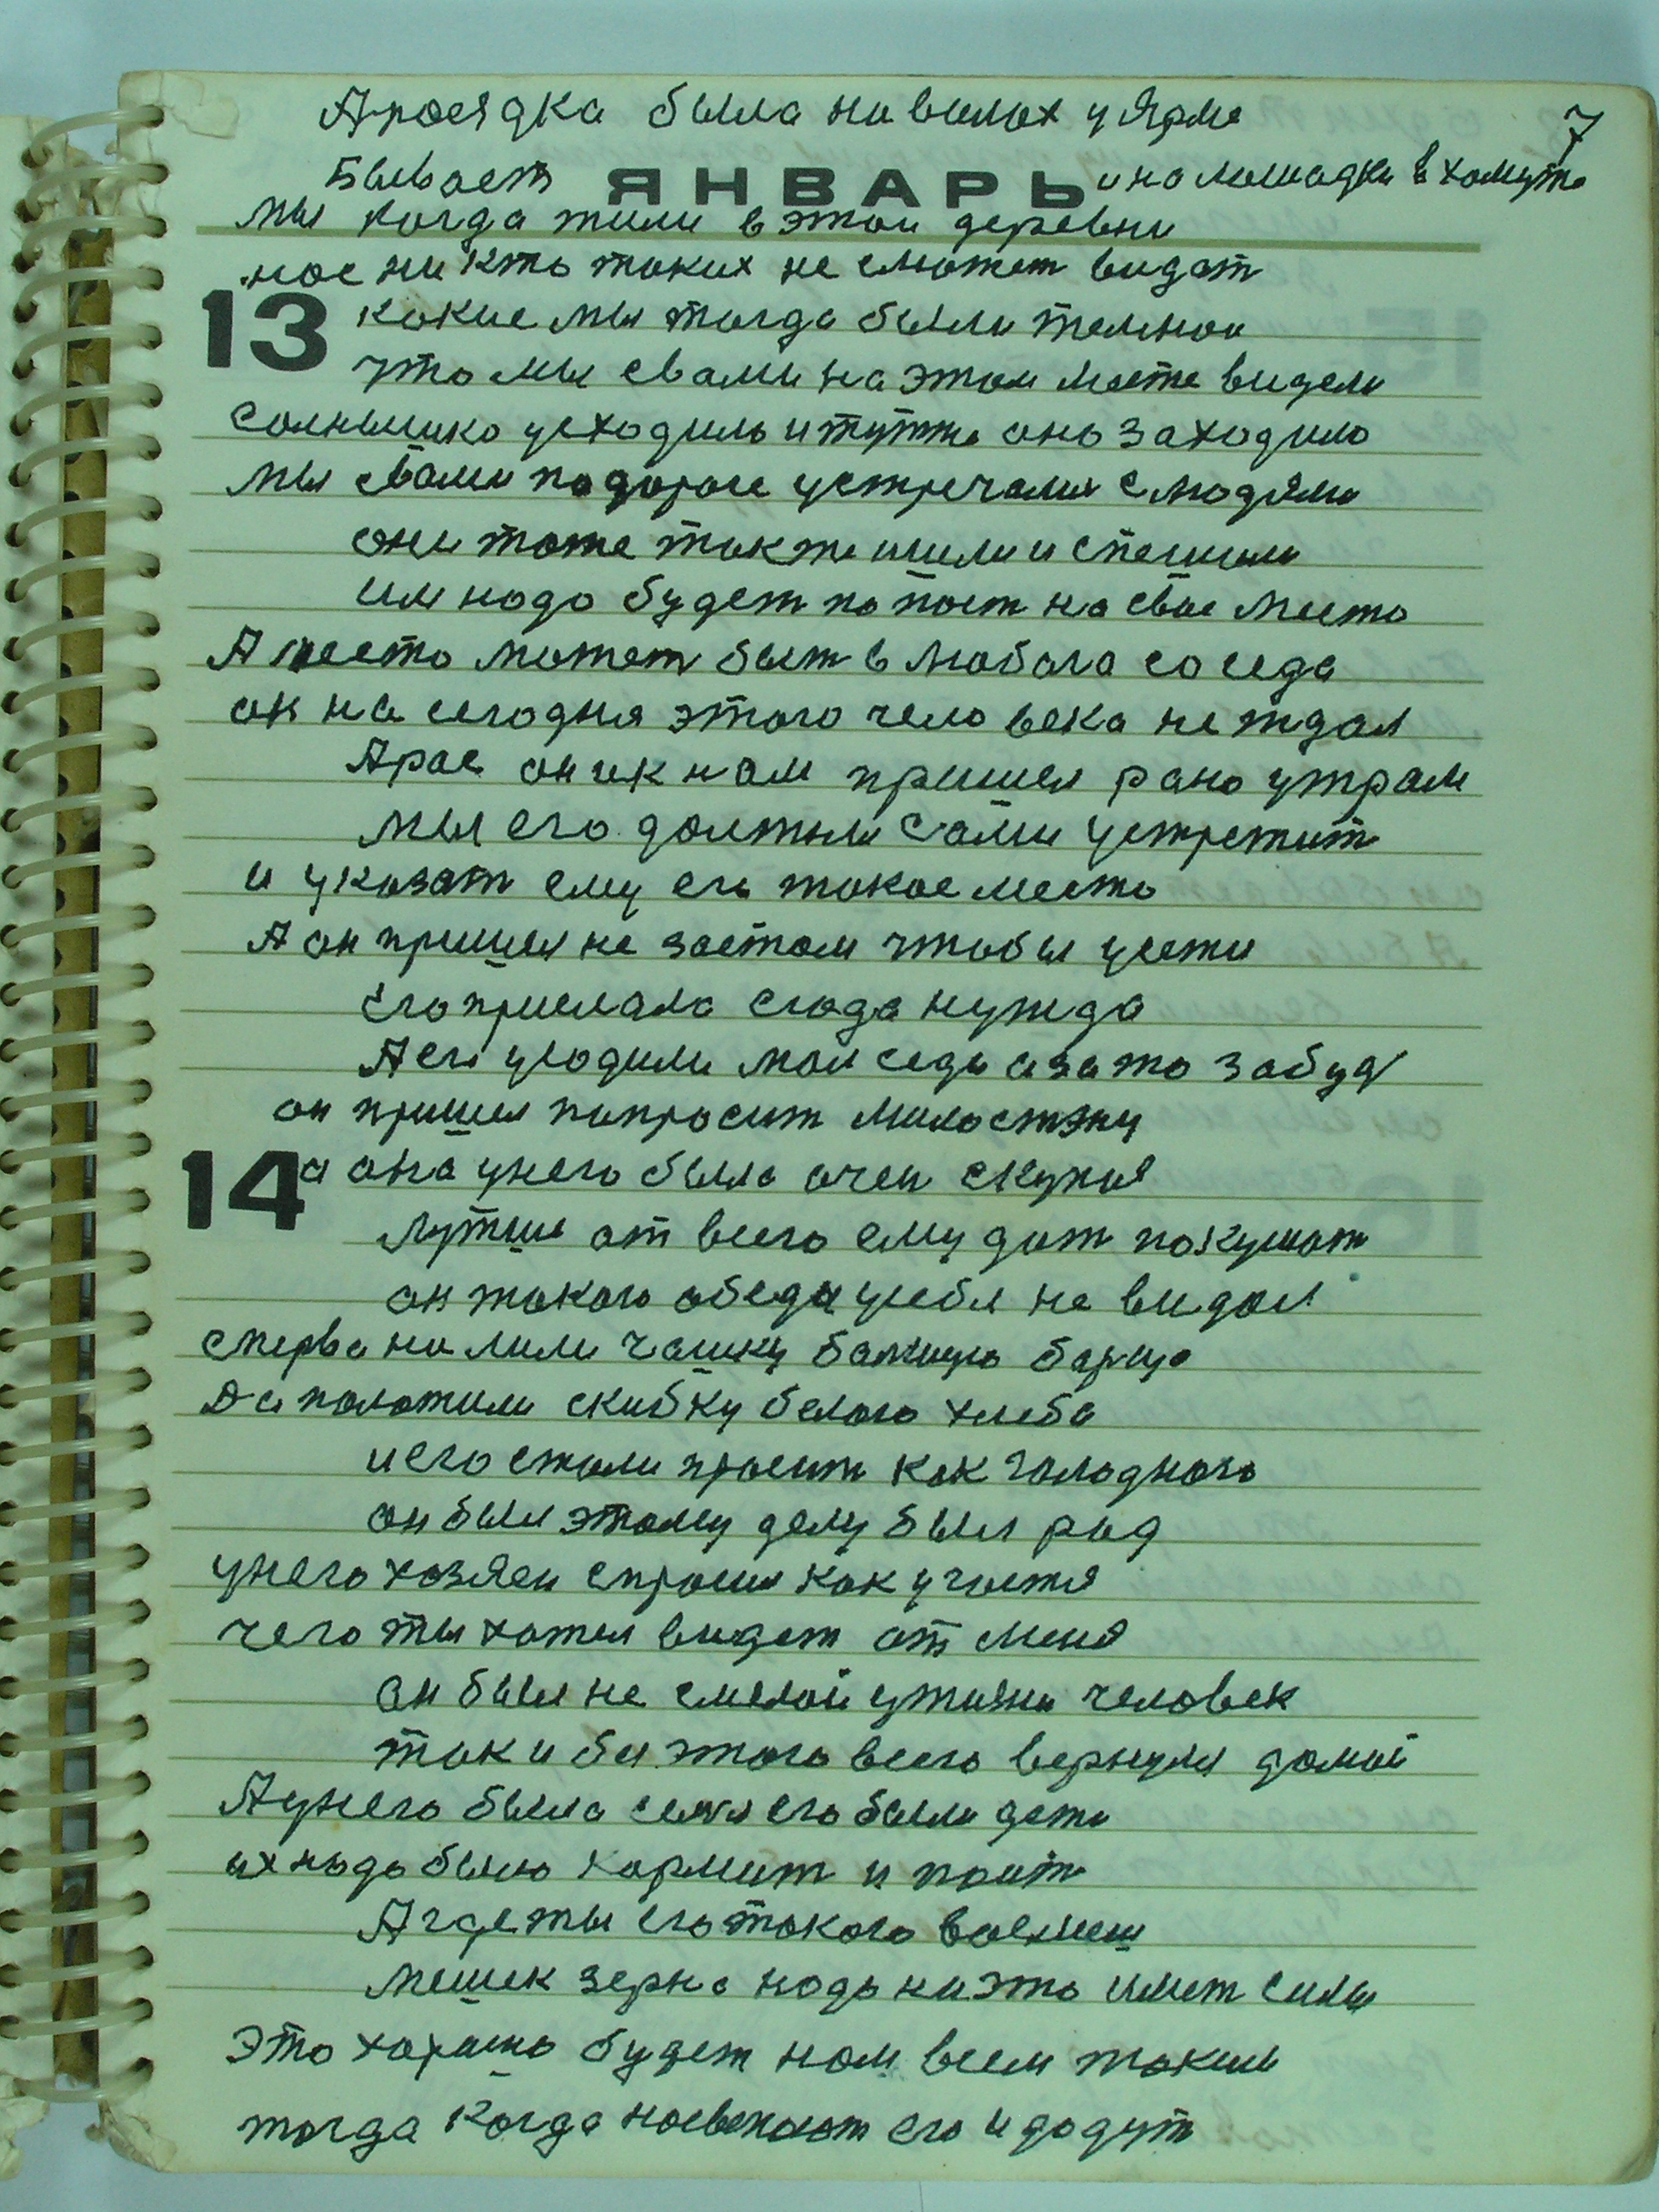 А роспдка была на вилах у Ярме
7
Бывает ЯНВАРЬ и на лошадки в хомуте
мы когда жили в этои деревни
нас ни кто таких не сможет видат
13 какие мы тогда были темнои
что мы свами на этом месте видели
солнышко усходило и тутже оно заходило
мы свами по дороге устречалис с людями
они тоже также шли и спешили
им надо будет попаст на свое место
А место может быт в любога соседа
он на сегодня этого человека не ждал
Арас он и к нам пришел рано утрам
мы его должны сами устретит
и указат ему его такое место
А он пришел не за стом чтобы уести
его прислала сюда нужда
А его уродили мол сади а за то забуд
он пришел попросит милостэну
14 а она унего была очен скупая
Лутше от всего ему дат покушат
он такого обеда усебя не видал
сперва налили чашку балшую борща
Да положили скибку белого хлеба
и его стали просит как голодного
он был этому делу был рад
унего хозяен спросил как у гостя
чего ты хотел видет от меня
он был не смелой ужизни человек
так и без этого всего вернулся домой
А унего была семя его были дети
их надо было кормит и поит
А где ты его такого возмеш
мешек зерна надо на это имет силы
Это хорошо будет нам всем таким
тогда когда насвешают его и дадут